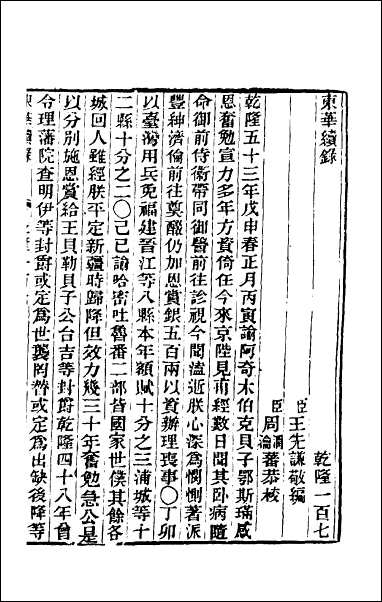 東華續錄
乾隆一百七
臣王先謙敬編
臣周潤蕃周瀹蕃恭校
乾隆五十三年戊申春正月丙寅諭阿奇木伯克貝子鄂斯璊感
恩奮勉宣力多年方資倚任今來京陛見甫經數日聞其臥病隨
命御前侍衞帶同御醫前往診視今聞溘逝朕心深爲憫惻著派
豐紳濟倫前往奠醊仍加恩賞銀五百兩以資辦理喪事〇丁卯
以臺灣用兵免福建晉江等八縣本年額賦十分之三浦城等十
二縣十分之二〇己巳諭哈密吐魯番二部皆國家世僕其餘各
城回人雖經朕平定新疆時歸降但效力幾三十年奮勉急公是
以分別施恩賞給王貝勒貝子公台吉等封爵乾隆四十八年曾
令理藩院查明伊等封爵或定爲世襲罔替或定爲出缺後降等